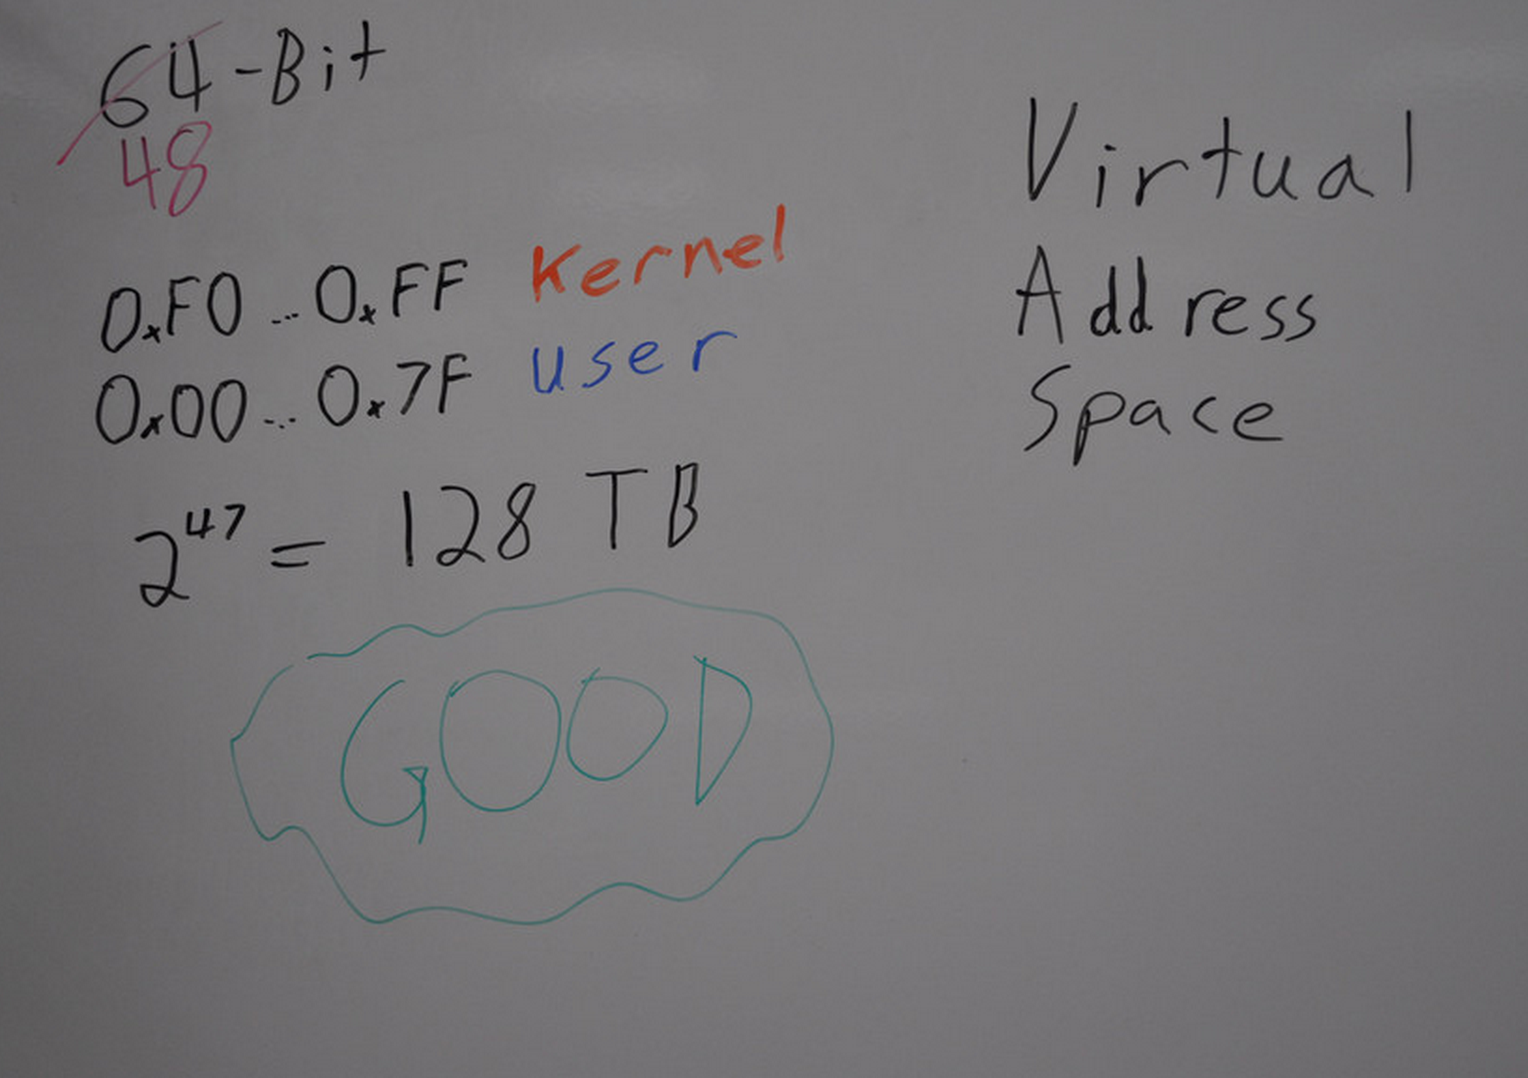 64-Bit
48
0xF0...0xFF Kernel
0x00...0x7F user
2^47 = 128 TB
GOOD
Virtual
Address
Space